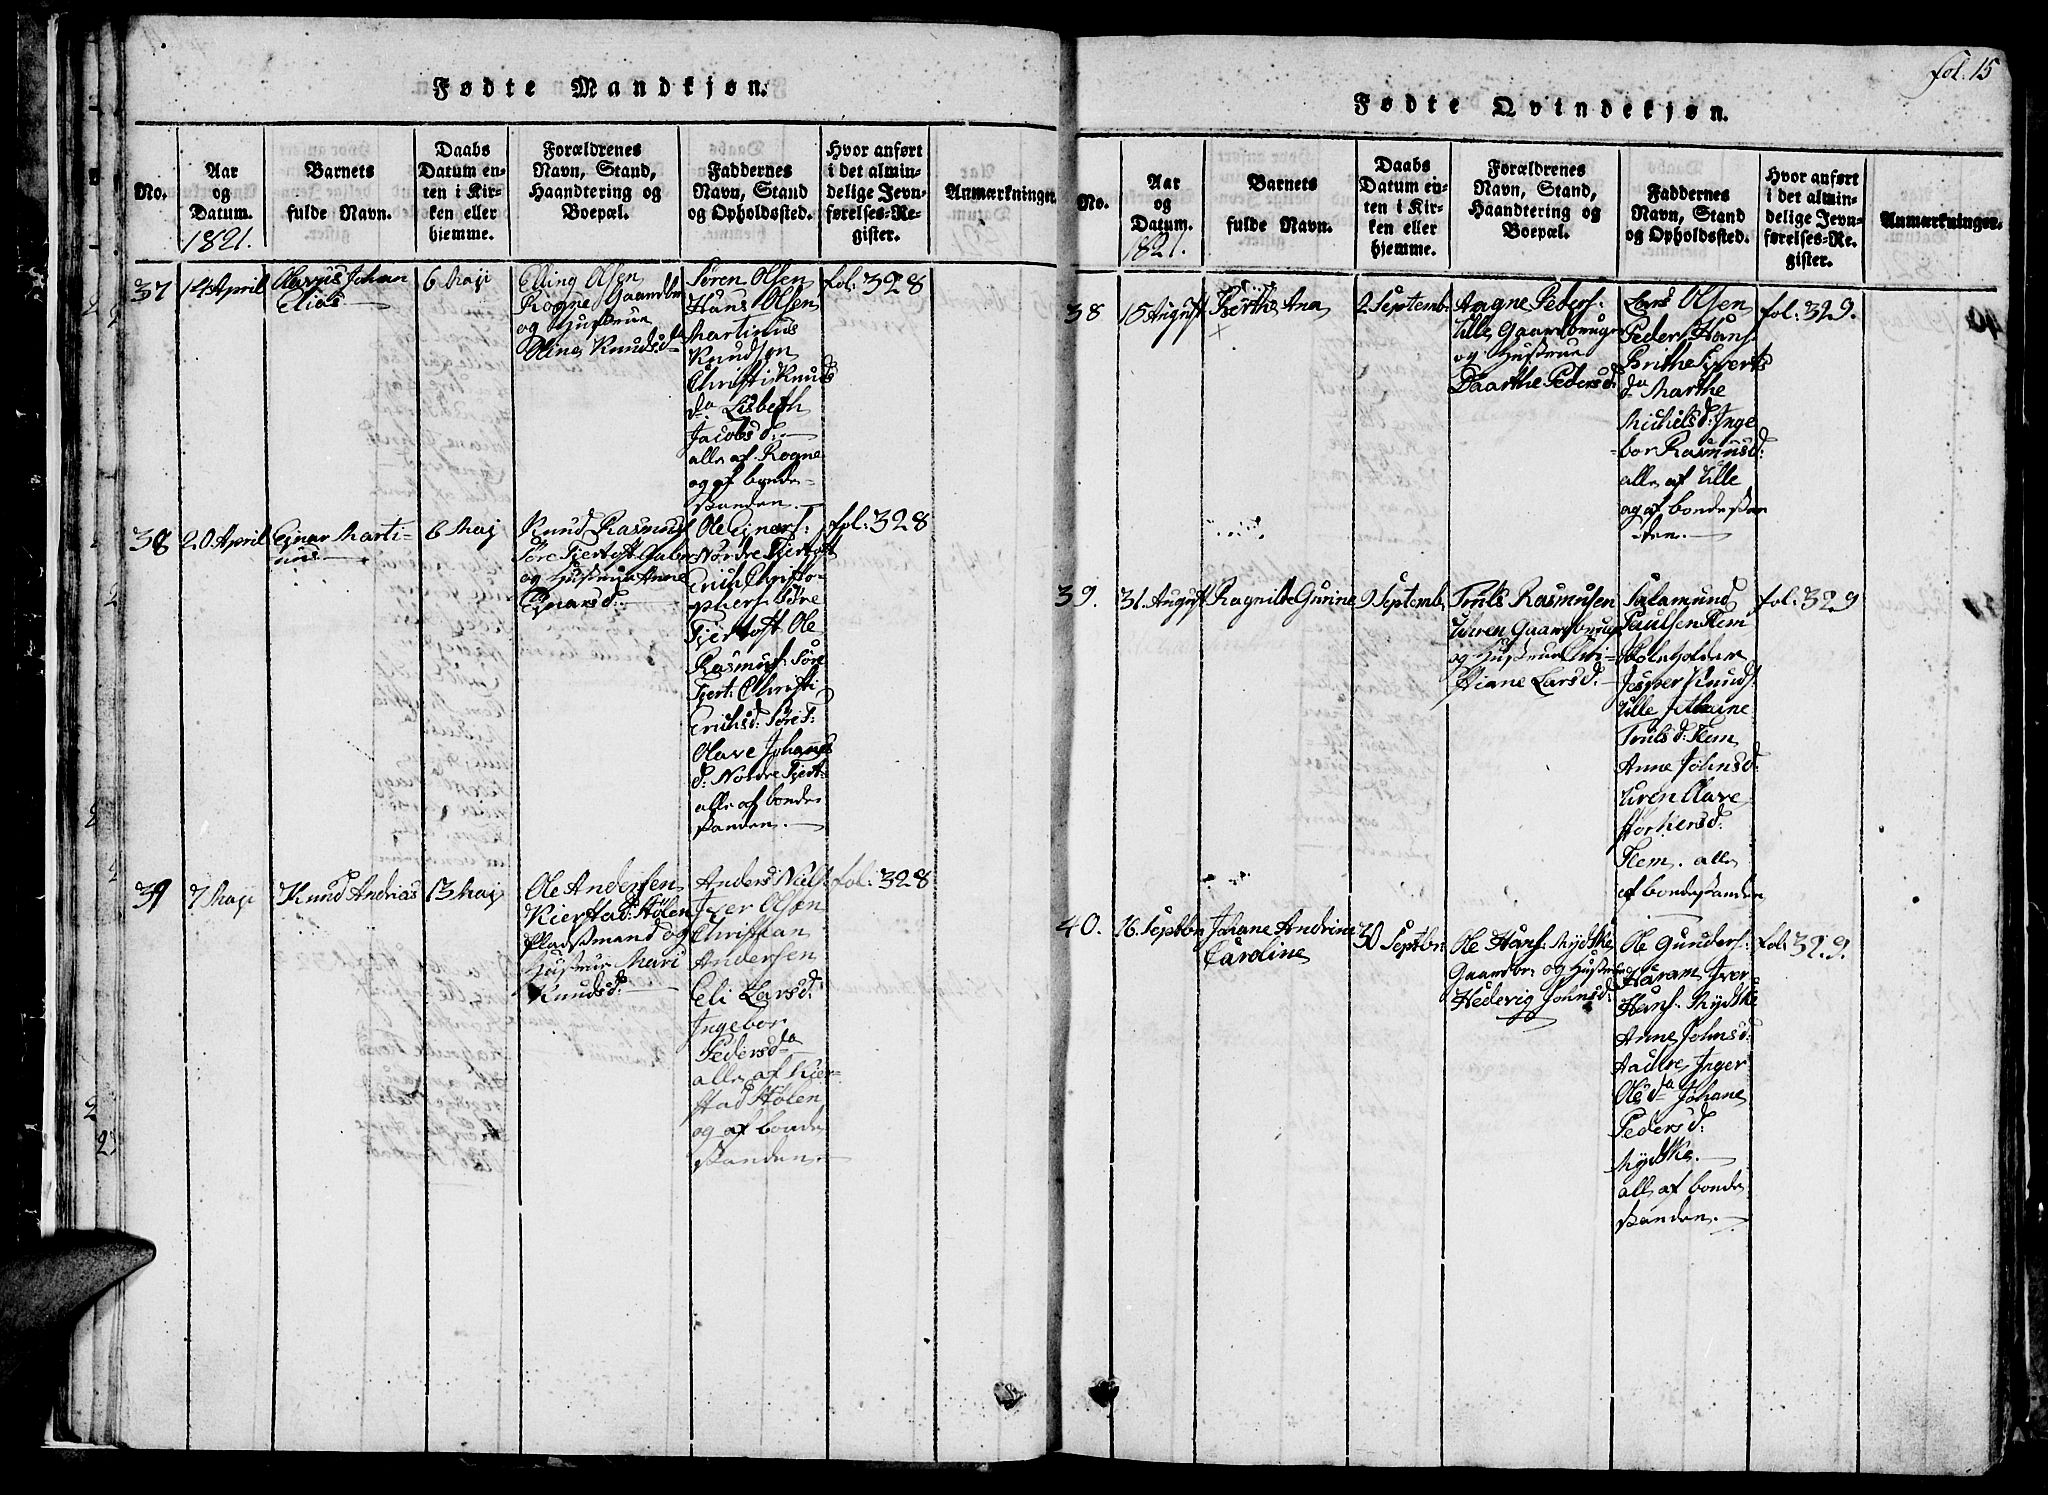 Fødte Mandkjøn.
No.
Aar
og
Datum.
1821.
Barnets
fulde Navn.
Daabs
Datum en-
ten i Kir-
ken eller
hjemme.
Forældrenes
Navn, Stand,
Haandtering og
Boepæl.
Faddernes
Navn, Stand
og Opholdssted.
Hvor anført
i det almin-
delige Jevn-
førelses-Re-
gister.
Anmærkninger
37
14 April
Johan
Elias
6 Maji
Elling Olsen
Rogne Gaardbr
og Hustrue
Oline Knudsd.
Søren Olsen
Hans Olsen
Martinus
Knudsen
Christi Knuds
da Lisbeth
Jacobsd:
alle af Rogne
og af bonde-
standen.
fol: 328
38
20 April
Ejnar Marti-
nus
6 Maj
Knud Rasmus:
Søre Fjertoft
og Hustrue Anne
Ejnarsd:
Ole Ejners:
Nordre Fjertoft
Erich Christo-
phers: Søre
Fjertoft Ole
Rasmus: Søre
Fjert: Christi
Erichsd: Søre F:
Olave Johannes
d: Nordre Fjert:
alle af bonde
standen.
fol: 328
39
7 Maji
Knud Andrias
13 Maj
Ole Andersen
Kierstad:Stølen
Pladsmand og
Hustrue Mari
Knudsd:
Anders Niels:
Iver Olsen
Christian
Andersen
Eli Larsd:
Ingebor
Pedersda
alle af Kier-
stad Stølen
og af bonde
standen.
fol: 328
fol. 15
Fødte Qvindekjøn.
No.
Aar
og
Datum.
1821.
Barnets
fulde Navn.
Daabs
Datum en-
ten i Kir-
ken eller
hjemme.
Forældrenes
Navn, Stand,
Haandtering og
Boepæl.
Faddernes
Navn, Stand
og Opholdssted.
Hvor anført
i det almin-
delige Jevn-
førelses-Re-
gister.
Anmærkninger.
38
15 August
Berthe Ana
2 Septemb:
Aagne Peders:
Ulle Gaardbruger
og Hustrue
Daarthe Pedersd:
Lars Olsen
Peder Hans:
Brithe Siverts
da Marthe
Michelsd: Inge
bor Rasmusd:
alle af Ulle
og af bondestan
den.
fol: 329.
39.
31. August
Ragnilde Gurine
9 Septemb:
Truls Rasmusen
Uren Gaardbruger
og Hustrue Chri-
stiane Larsd:
Salamund
Paulsen Flem
Skoleholder
Jesper Knuds:
Ulle
Trulsd: Flem
Anne Johnsd:
Uren Olave
Flem. alle
af bondestanden
fol: 329
40.
16. Septbr
Johane Andrine
Caroline
30 Septbr:
Ole Hans: Mydske
Gaardbr: og Hustrue
Hedevig Johnsd:
Ole Gunders:
Haram Iver
Hans: Mydske
Anne Johnsd:
Inger
Olesda Johane
Pedersd:
Mydske.
alle af bonde
standen.
fol: 329.